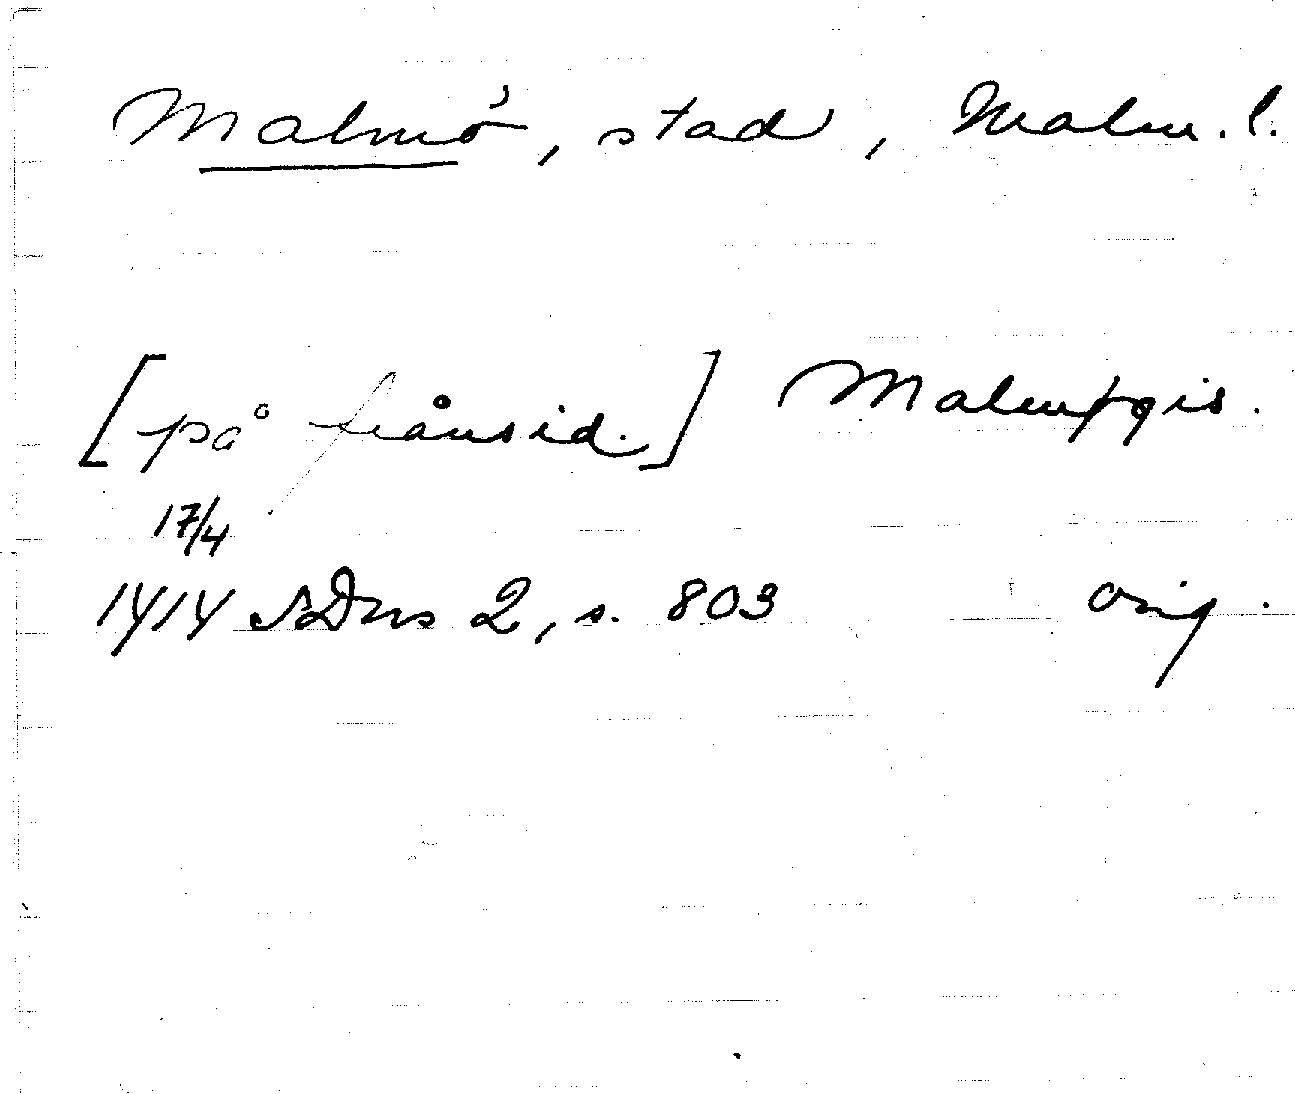 Malmö, stad, Malm. l.
[på frånsid.] Malmþgis.
17/4
1414 SDns 2, s. 803 orig.